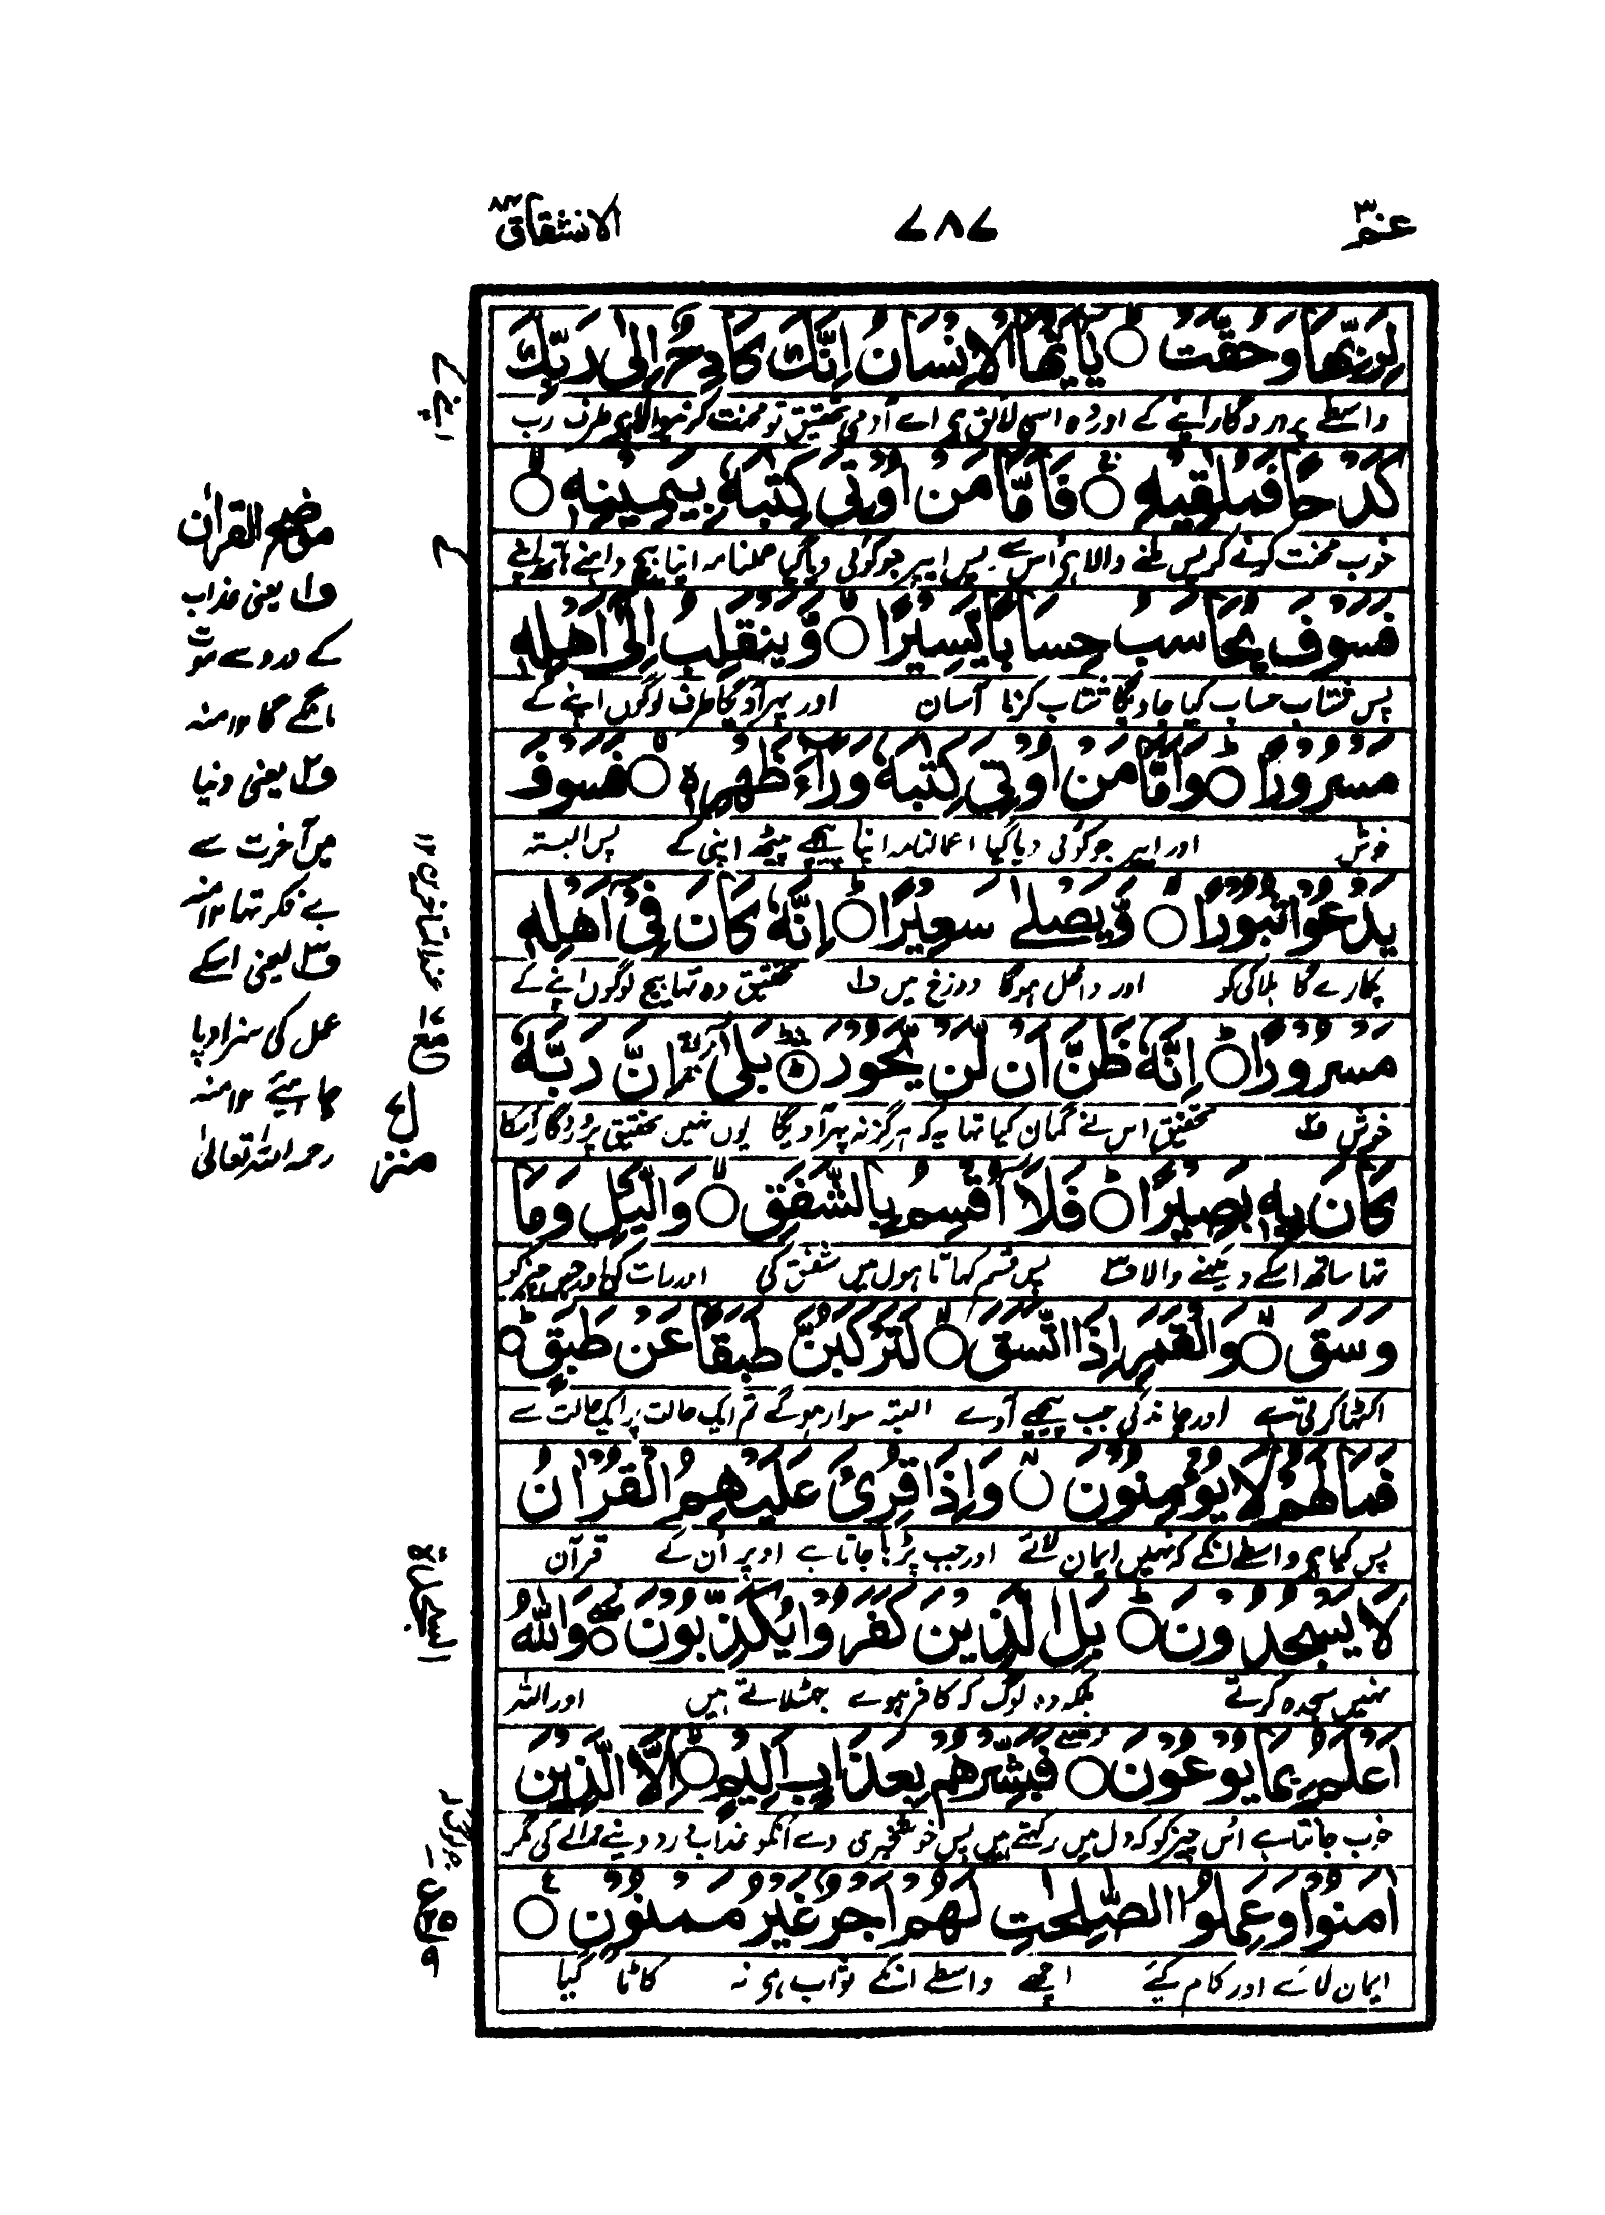 عم ۳۰
۷۸۷
الانشقاق ۸۴
لِرَبِّهَا وَحُقَّتْ ○ يَا أَيُّهَا الْإِنْسَانُ إِنَّكَ كَادِحٌ إِلَىٰ رَبِّكَ
واسطے پروردگار اپنے کے اور وہ اسی لائق ہی اے آدمی تحقیق تو محنت کرنیوالا ہی طرف رب
كَدْحًا فَمُلٰقِيهِ ○ فَأَمَّا مَنْ أُوتِيَ كِتٰبَهٗ بِيَمِينِهٖ ○
خوب محنت کرنے کر پس ملنے والا ہی اس سے پس اپیر جو کوئی دیا گیا عملنامہ اپنا بیچ داہنے ہاتھ
فَسَوْفَ يُحَاسَبُ حِسَابًا يَسِيرًا ○ وَّيَنْقَلِبُ إِلٰى أَهْلِهٖ
پس شتاب حساب کیا جاویگا شتاب کرنا آسان اور پہر آویگا طرف لوگوں اپنے کے
مَسْرُورًا ○ وَأَمَّا مَنْ أُوتِيَ كِتٰبَهٗ وَرَاءَ ظَهْرِهٖ ○ فَسَوْفَ
خوش اور اپیر جو کوئی دیا گیا اعمالنامہ اپنا پیچھے پیٹھ اپنی کے پس البتہ
يَدْعُوا ثُبُورًا ○ وَّيَصْلٰى سَعِيرًا ○ إِنَّهٗ كَانَ فِيْ أَهْلِهٖ
پکارے گا ہلاکی کو اور داخل ہوگا دوزخ میں ف۱ تحقیق وہ تہا بیچ لوگوں اپنے کے
مَسْرُورًا ○ إِنَّهٗ ظَنَّ أَنْ لَّنْ يَّحُورَ ○ بَلٰى إِنَّ رَبَّهٗ
خوش ف۲ تحقیق اس نے گمان کیا تہا یہ کہ ہرگز نہ پہر آویگا یوں نہیں تحقیق پروردگار اسکا
كَانَ بِهٖ بَصِيرًا ○ فَلَا أُقْسِمُ بِالشَّفَقِ ○ وَاللَّيْلِ وَمَا
تہا ساتھ اسکے دیکھنے والا ف۳ پس قسم کہاتا ہوں میں شفق کی اور رات کی اور جس چیز کو
وَسَقَ ○ وَالْقَمَرِ إِذَا اتَّسَقَ ○ لَتَرْكَبُنَّ طَبَقًا عَنْ طَبَقٍ ○
اکٹھا کرتی ہے اور چاند کی جب پیچھے آوے البتہ سوار ہوگے تم ایک حالت پر ایک حالت سے
فَمَا لَهُمْ لَا يُؤْمِنُونَ ○ وَإِذَا قُرِئَ عَلَيْهِمُ الْقُرْاٰنُ
پس کیا ہی واسطے انکے کہ نہیں ایمان لاتے اور جب پڑہا جاتا ہے اوپر اُن کے قرآن
لَا يَسْجُدُونَ ○ بَلِ الَّذِينَ كَفَرُوا يُكَذِّبُونَ ○ وَاللّٰهُ
نہیں سجدہ کرتے بلکہ وہ لوگ کہ کافر ہوے جھٹلاتے ہیں اور اللہ
أَعْلَمُ بِمَا يُوعُونَ ○ فَبَشِّرْهُمْ بِعَذَابٍ أَلِيمٍ ○ إِلَّا الَّذِينَ
خوب جانتا ہے اس چیز کو کہ دل میں رکہتے ہیں پس خوشخبری دے اُنکو عذاب درد دینے والے کی مگر
اٰمَنُوا وَعَمِلُوا الصّٰلِحٰتِ لَهُمْ أَجْرٌ غَيْرُ مَمْنُونٍ ○
ایمان لائے اور کام کیے اچھے واسطے انکے ثواب ہی نہ کاٹا گیا
موضح القرآن
ف۱ یعنی عذاب
کے مدد سے موت
مانگے گا ۱۲ منہ
ف۲ یعنی دنیا
میں آخرت سے
بے فکر تہا ۱۲ منہ
ف۳ یعنی اسکے
عمل کی سزا دیا
چاہیئے ۱۲ منہ
رحمہ اللہ تعالیٰ
اپنے کے
منزل ۷
السجدة